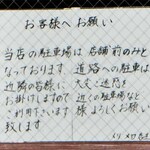 お客様へお願い
当店の駐車場は店舗前のみと
なっております 道路への駐車は
近隣の皆様に大変ご迷惑を
お掛けしますので近くの駐車場など
ご利用下さいます様よろしくお願い
致します